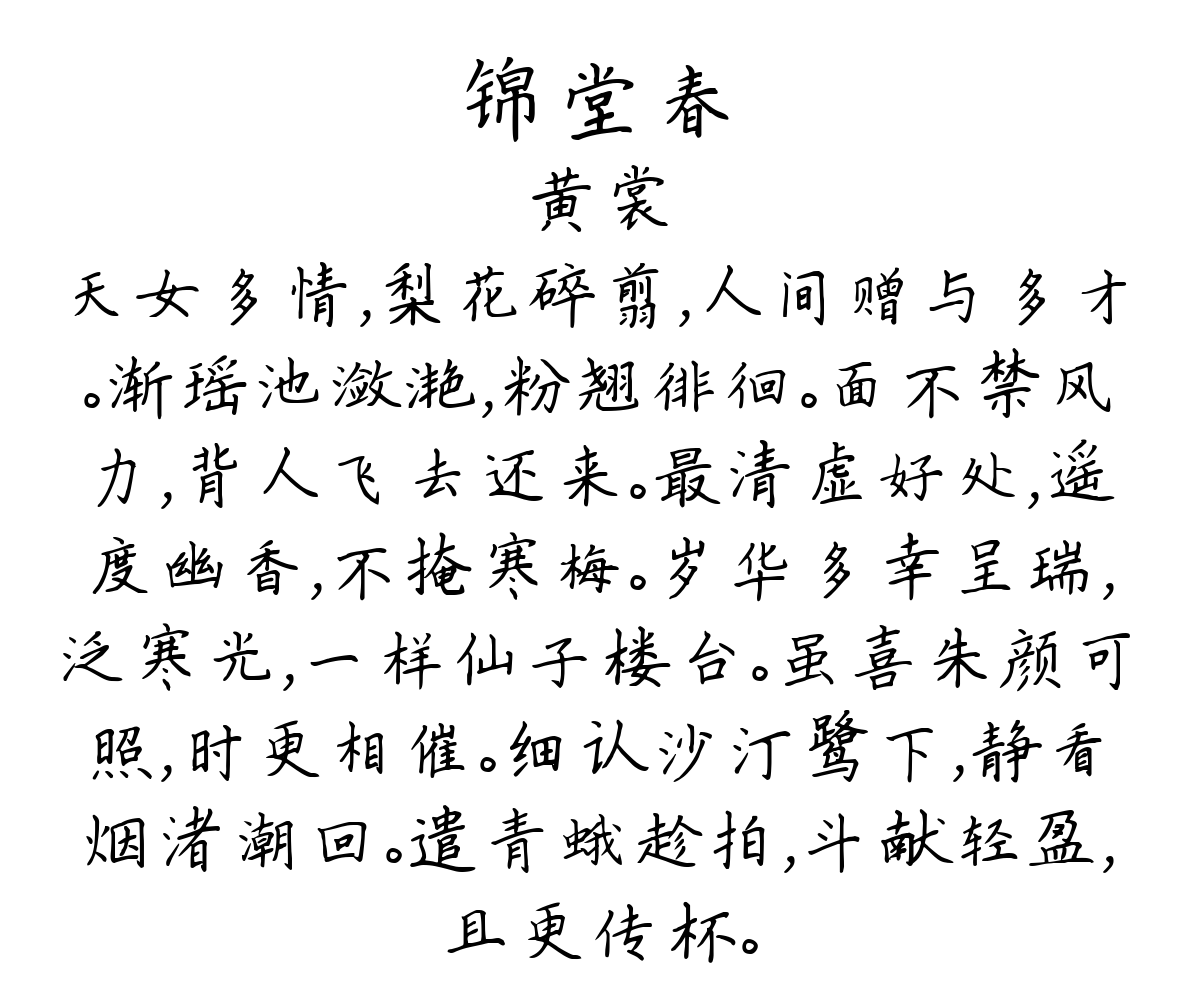 锦堂春
黄裳
天女多情,梨花碎翦,人间赠与多才
。渐瑶池潋滟,粉翘徘徊。面不禁风
力,背人飞去还来。最清虚好处,遥
度幽香,不掩寒梅。岁华多幸呈瑞,
泛寒光,一样仙子楼台。虽喜朱颜可
照,时更相催。细认沙汀鹭下,静看
烟渚潮回。遣青蛾趁拍,斗献轻盈,
且更传杯。